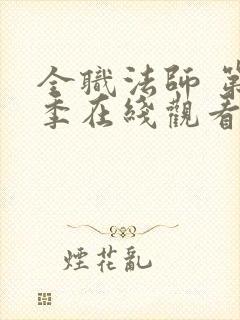 全職法師 第
季在綫觀看
煙花亂